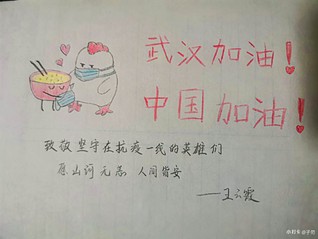 武汉加油！
中国加油！
致敬坚守在抗疫一线的英雄们
愿山河无恙 人间皆安
——王云霞